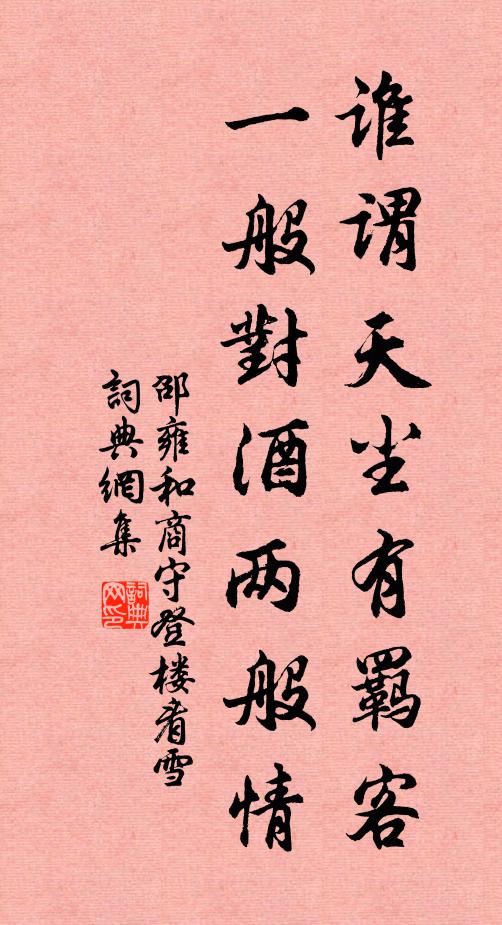 谁谓天坐有羁客
一般對酒两般情
邵雍和商守登楼看雪
詞典網集
詞典
网印